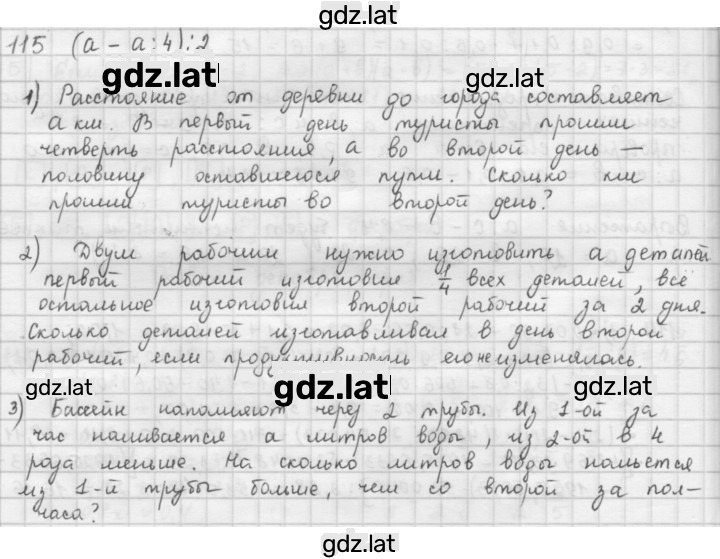 gdz.lat
115 (a - a:4):2
gdz.lat gdz.lat
1) Расстояние от деревни до города составляет
a км. В первый день туристы прошли
четверть расстояния, а во второй день —
половину оставшегося пути. Сколько км
прошли туристы во второй день?
2) Двум рабочим нужно изготовить a деталей
первый рабочий изготовил 1/4 всех деталей, всё
остальное изготовил второй рабочий за 2 дня.
Сколько деталей изготавливал в день второй
рабочий, если продуктивность его не изменялась.
gdz.lat gdz.lat gdz.lat
3) Бассейн наполняют через 2 трубы. Из 1-ой за
час наливается a литров воды, из 2-ой в 4
раза меньше. На сколько литров воды нальется
из 1-й трубы больше, чем со второй за пол-
часа?
gdz.lat